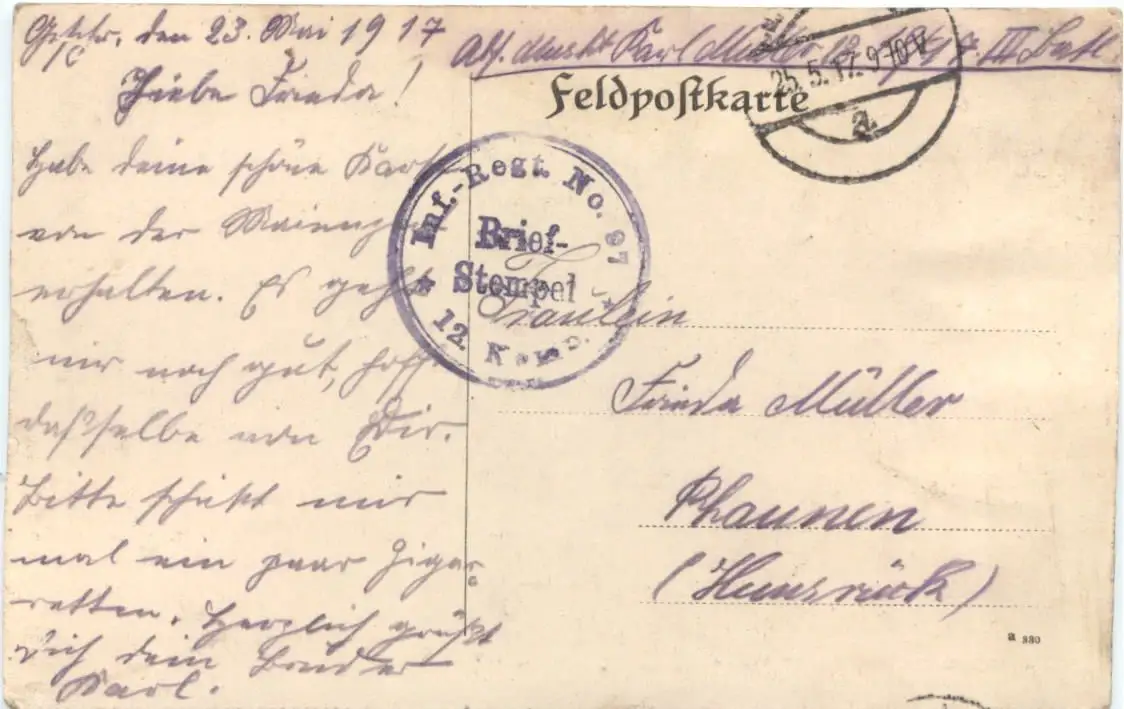 den 23. Mai 1917
Abs. Muskt. Karl Müller 12. /97. III Batl.
Liebe Frieda!
Feldpostkarte
25.5.17. 9-10V
a.
Habe deine schöne Karte
von der
erhalten. Es geht
mir noch gut, hoffe
dasselbe von Dir.
Bitte schikt mir
mal ein paar Zigar-
retten. Herzlich grüßt
dich dein Bruder
Karl.
Inf.-Regt. No. 97
Brief-
Stempel
12. Komp.
Fräulein
Frieda Müller
Rhaunen
(Hunsrück)
a 880